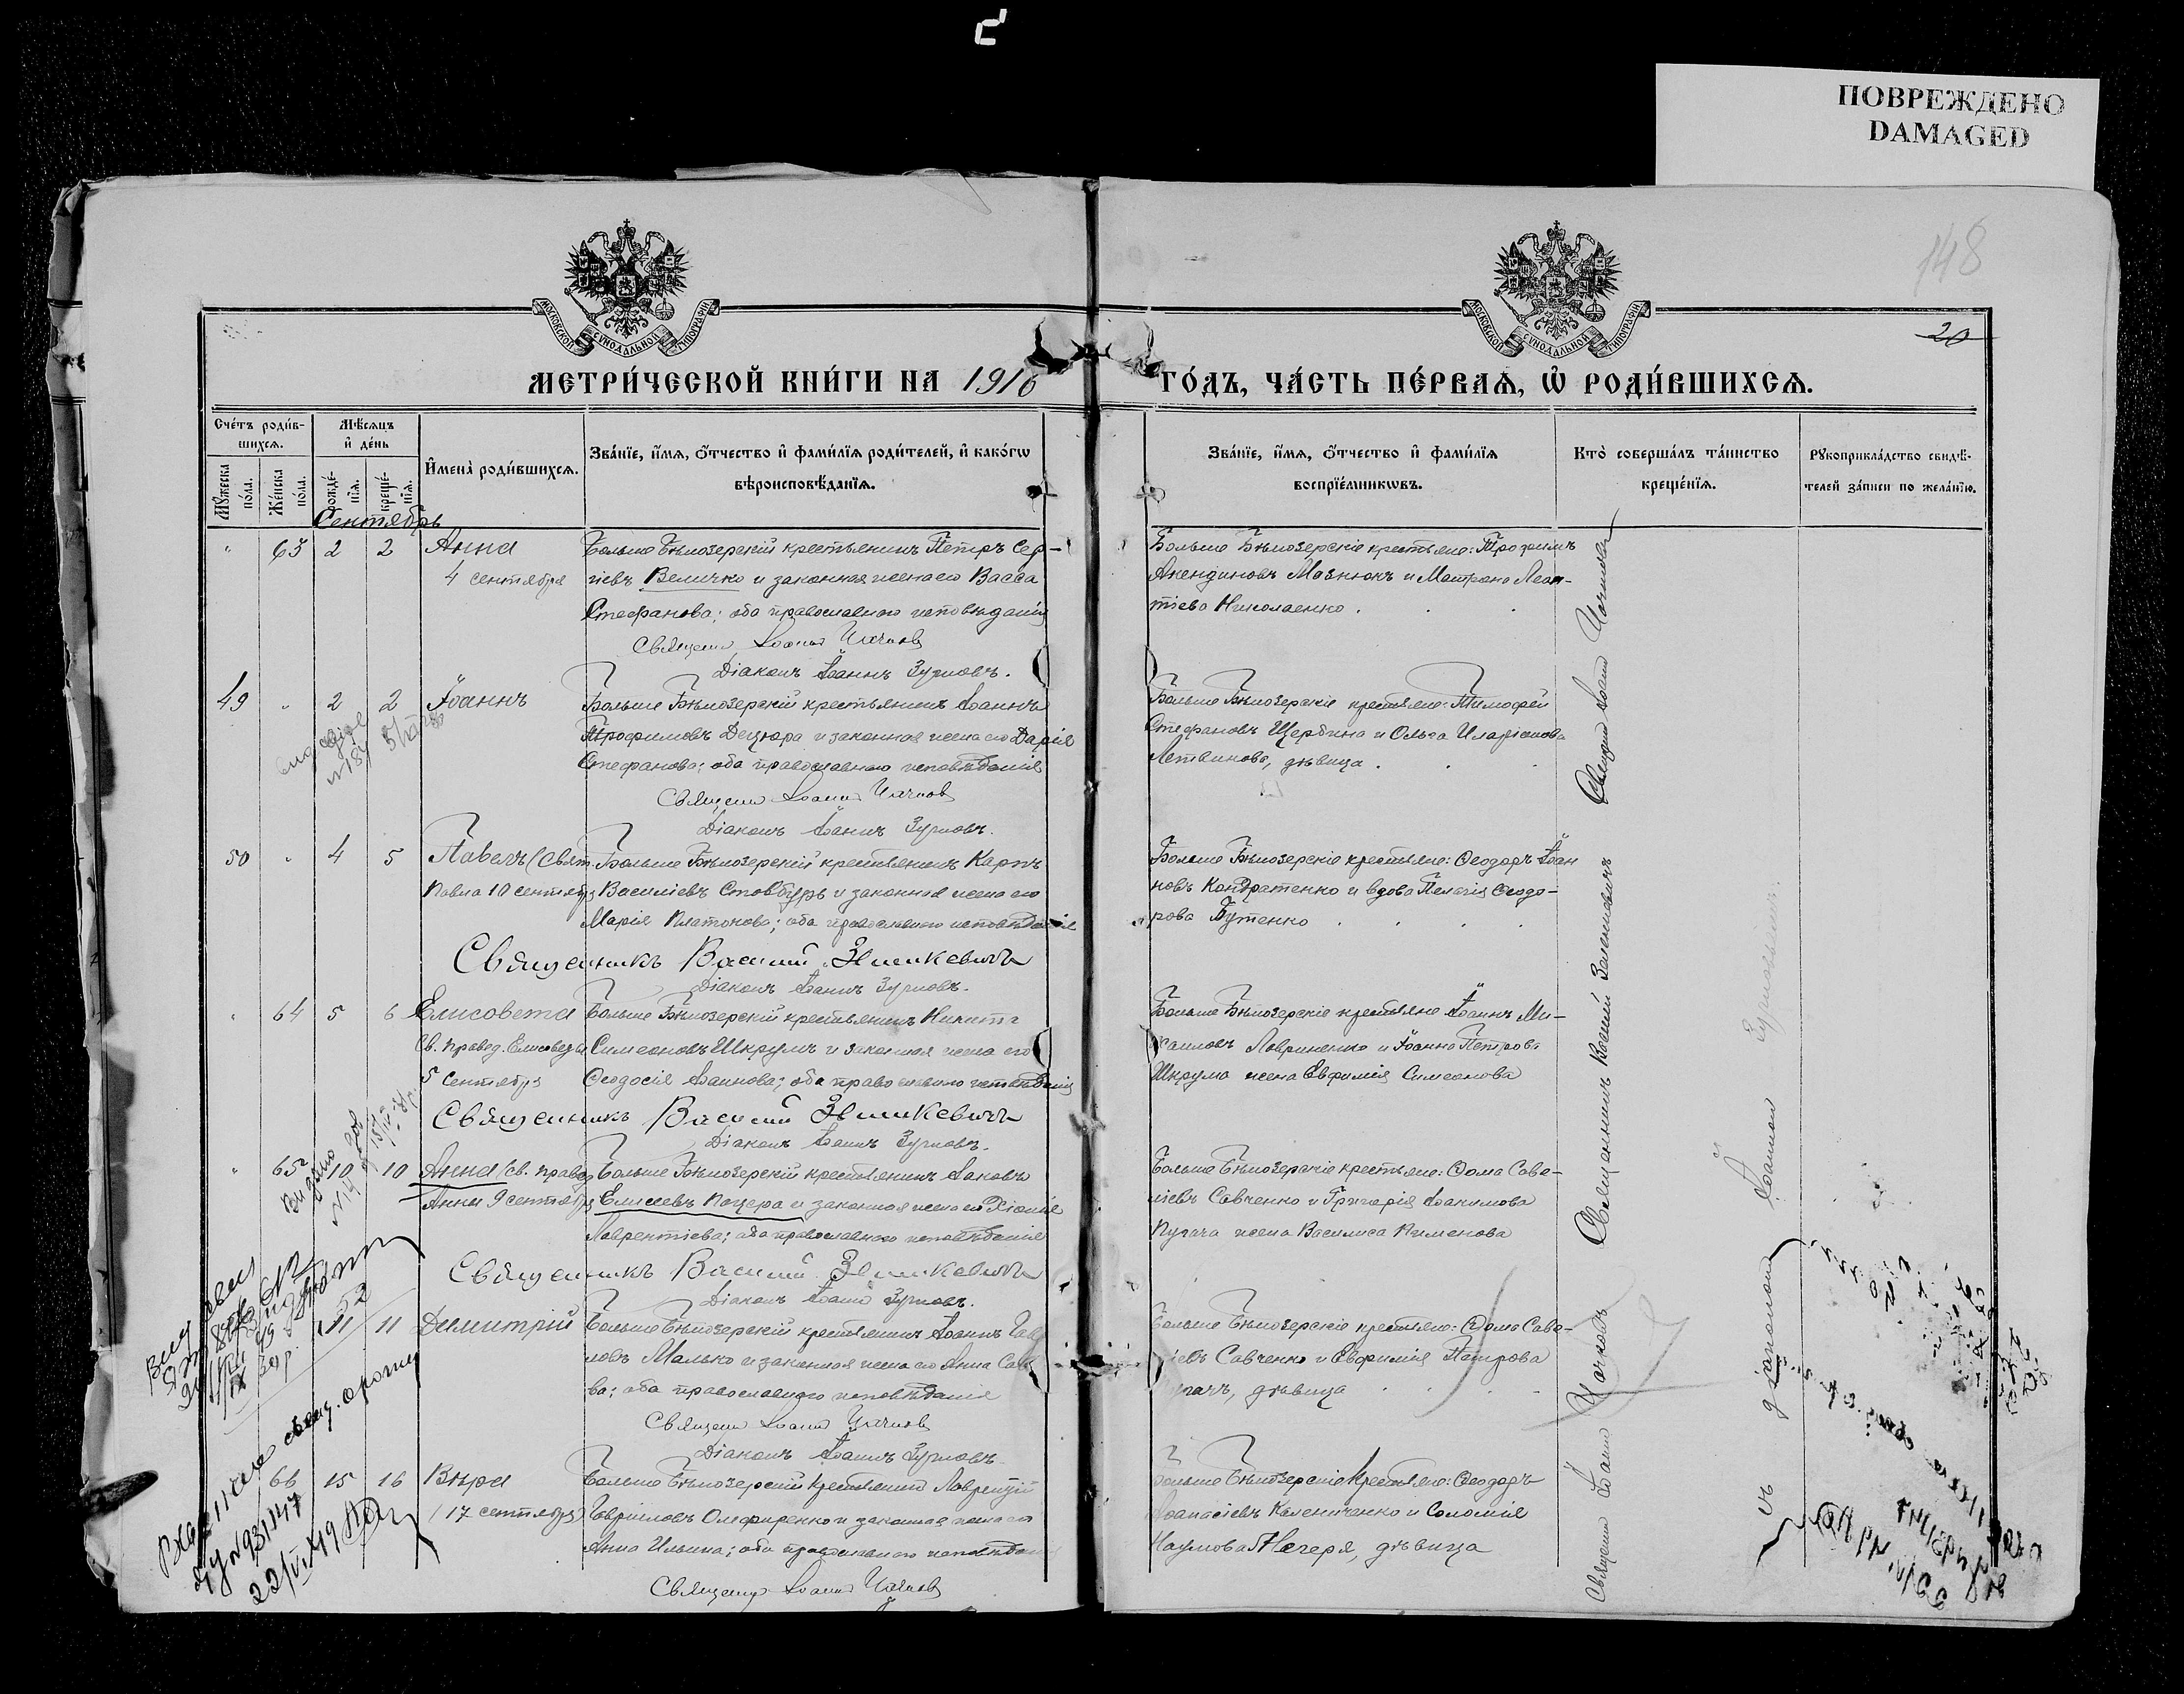 ПОВРЕЖДЕНО
DAMAGED
148
20
МОСКОВСКОЙ СѴНОДАЛЬНОЙ ТИПОГРАФІИ
МОСКОВСКОЙ СѴНОДАЛЬНОЙ ТИПОГРАФІИ
МЕТРИ́ЧЕСКОЙ КНИ́ГИ НА 1916 ГО́ДЪ, ЧА́СТЬ ПЕ́РВАѦ, Ѡ҆ РОДИ́ВШИХСѦ.
Сче́тъ роди́в-
шихсѧ.
Мѣ́сѧцъ
и҆ де́нь
Мꙋ́жеска по́ла.
Же́нска по́ла.
рожде́-нїѧ.
креще́-нїѧ.
И҆мена̀ роди́вшихсѧ.
Зва́нїе, и҆́мѧ, ѻ҆́тчество и҆ фами́лїѧ роди́телей, и҆ како́гѡ
вѣроисповѣ́данїѧ.
Зва́нїе, и҆́мѧ, ѻ҆́тчество и҆ фами́лїѧ
воспрїе́мникѡвъ.
Кто̀ соверша́лъ та́инство
креще́нїѧ.
Рꙋкоприкла́дство свидѣ́-
телей за́писи по жела́нїю.
Сентябрь
" 63 2 2 Анна
4 сентября
Больше Бѣлозерскій крестьянинъ Петръ Сер-
гіевъ Величко и законная жена его Васса
Стефанова; оба православнаго исповѣданія
Священ Іоаннъ Чачковъ
Діаконъ Іоаннъ Зурновъ.
Больше Бѣлозерскіе крестьяне: Трофимъ
Акендиновъ Мазнюкъ и Матрона Леон-
тіева Николаенко.
49 " 2 2 Іоаннъ
Больше Бѣлозерскій крестьянинъ Іоаннъ
Трофимовъ Децюра и законная жена его Дарія
Стефанова; оба православнаго исповѣданія
Священ Іоаннъ Чачковъ
Діаконъ Іоаннъ Зурновъ.
Больше Бѣлозерскіе крестьяне: Тимофей
Стефановъ Щербина и Ольга Иларіонова
Летвинова, дѣвица.
50 " 4 5 Павелъ (Свят.
Павла 10 сентября
Больше Бѣлозерскій крестьянинъ Карпъ
Василіевъ Стовбуръ и законная жена его
Марія Платонова; оба православнаго исповѣданія
Священникъ Василій Зеленкевичъ
Діаконъ Іоаннъ Зурновъ.
Больше Бѣлозерскіе крестьяне: Ѳеодоръ Іоан
новъ Кондратенко и вдова Пелагія Ѳеодо-
рова Бутенко
" 64 5 6 Елисовета
Св. правед. Елисаветы
5 сентября
Больше Бѣлозерскій крестьянинъ Никита
Симеоновъ Шкрумъ и законная жена его
Ѳеодосія Іоаннова; оба православнаго исповѣданія
Священникъ Василій Зеленкевичъ
Діаконъ Іоаннъ Зурновъ.
Больше Бѣлозерскіе крестьяне Іоаннъ Ми-
хаиловъ Лавриненко и Іоанна Петрова
Шкрума жена Евфимія Симеонова
" 65 10 10 Анна (св. правед
Анны 9 сентября
Больше Бѣлозерскій крестьянинъ Іаковъ
Елисеевъ Поцера и законная жена его Хіонія
Лаврентіева; оба православнаго исповѣданія
Священникъ Василій Зеленкевичъ
Діаконъ Іоаннъ Зурновъ.
Больше Бѣлозерскіе крестьяне: Ѳома Саве-
ліевъ Савченко и Григорія Іоакимова
Пугача жена Василиса Пименова
52 11 11 Димитрій
Больше Бѣлозерскій крестьянинъ Іоаннъ
ловъ Малько и законная жена его Анна
ва; оба православнаго исповѣданія
Священ Іоаннъ Чачковъ
Діаконъ Іоаннъ Зурновъ
Больше Бѣлозерскіе крестьяне: Ѳома Саве-
ліевъ Савченко и Евфимія Петрова
дѣвица
66 15 16 Вѣра
(17 сентября)
Больше Бѣлозерскій крестьянинъ Лаврентій
Гавріиловъ Олефиренко и законная жена его
Анна Ильина; оба православнаго исповѣдан
Священ Іоаннъ Чачковъ
Больше Бѣлозерскіе крестьяне: Ѳеодоръ
Аѳанасіевъ Калениченко и Соломія
Наумова Негеря, дѣвица
Священ Іоаннъ Чачковъ
Священникъ Василій Зеленкевичъ
Священ Іоаннъ Чачковъ
съ діакономъ Іоанномъ Зурновымъ.